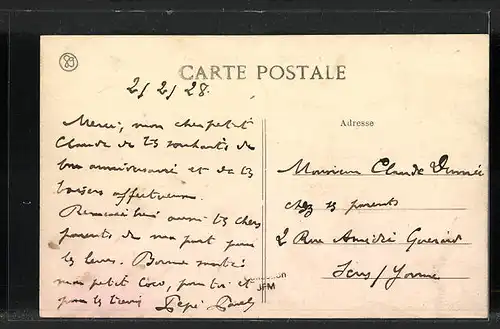 CARTE POSTALE
2/2/28.
Merci, mon cher petit
Claude de tes souhaits de
bon anniversaire et de tes
baisers affectueux.
aussi tes chers
parents de ma part pour
les leurs. Bonne santé
mon petit Coco, pour toi et
pour les tiens
Pepé
Adresse
Monsieur Claude
chez ses parents
2 Rue Amédée
Sens / Yonne
JFM